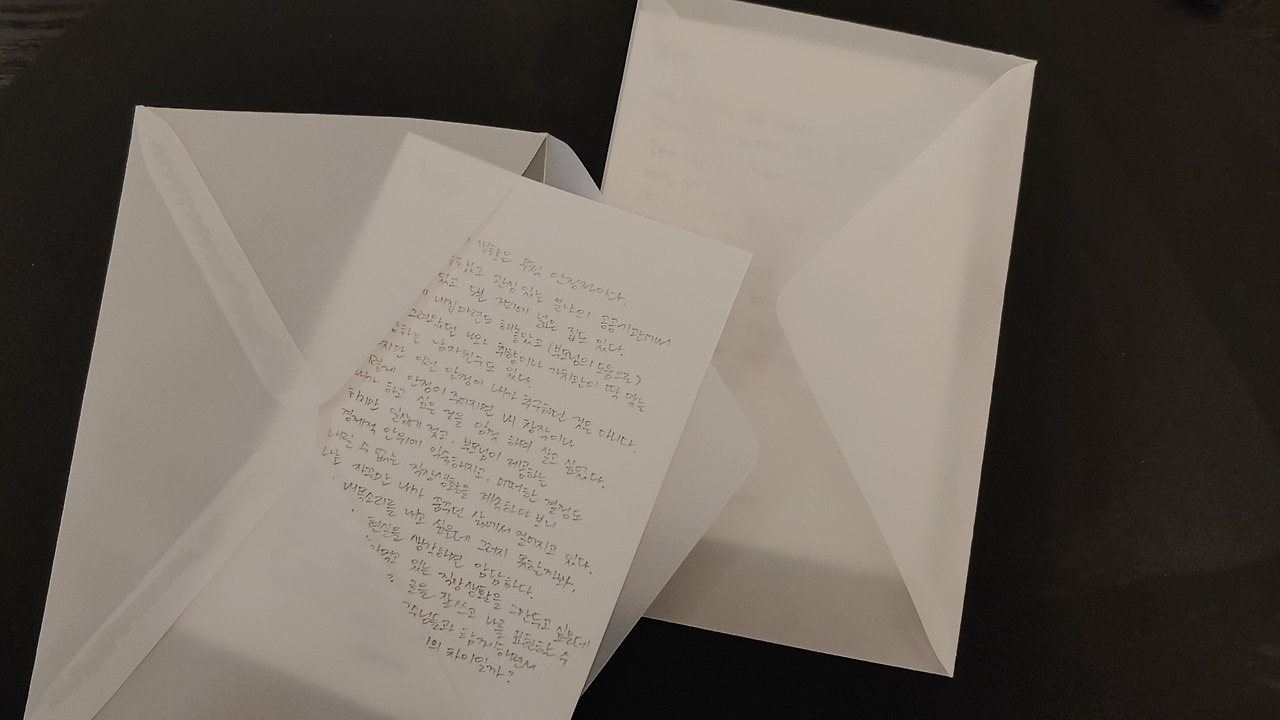 생활은 무척 안정적이다.
있고 관심 있는 분야의 공공기관에서
있고 넓은 집도 있다.
내집마련도 해놓았고 (부모님의 도움으로)
취향이나 가치관이 딱 맞는
하는 남자친구도 있다.
지만 이런 안정이 내가 추구하던 것은 아니다.
안정이 주어지면 내 창작이나
내가 하고 싶은 것을 맘껏 하며 살고 싶었다.
하지만 일상에 젖고, 부모님이 제공하는
경제적 안위에 익숙해지고, 어떠한 결정도
내릴 수 없는 직장생활을 계속하다 보니
나는 자꾸만 내가 꿈꾸던 삶에서 멀어지고 있다.
내 목소리를 내고 싶은데 그러지 못할까봐,
현실을 생각하면 암담하다.
있는 직장생활을 그만두고 싶은데
글을 잘 쓰고 나를 표현하는 수
함께하면서
의 차이일까?